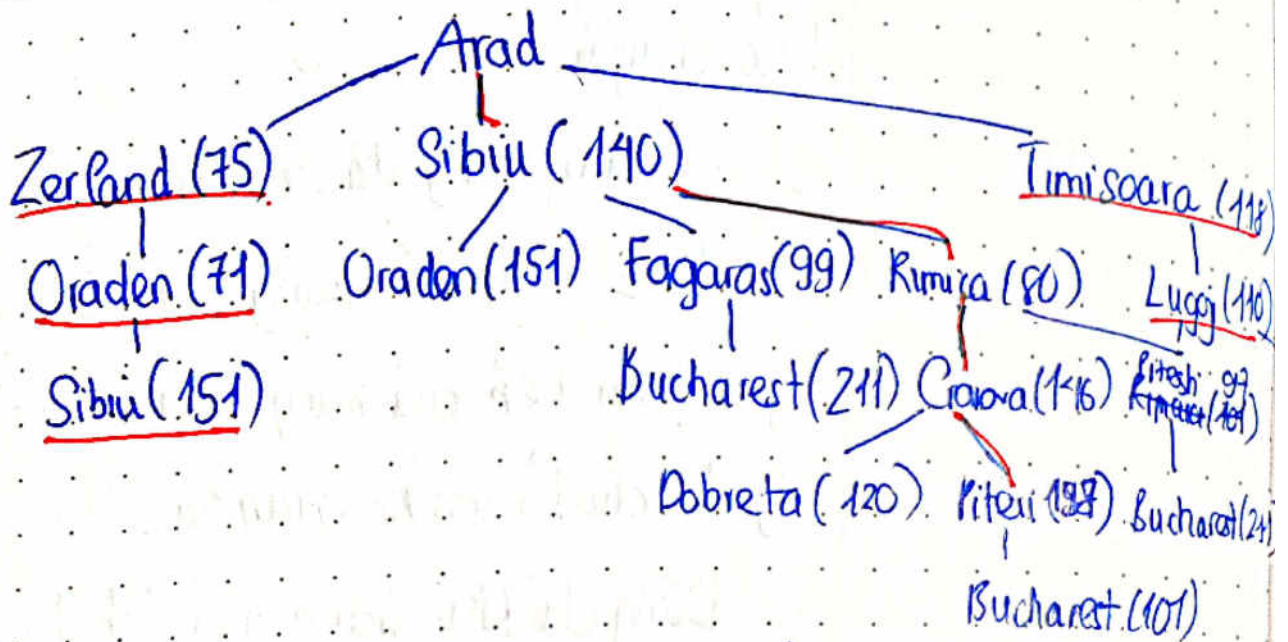 Arad
Zerland (75) Sibiu (140) Timisoara (118)
Oraden (71) Oraden (151) Fagaras (99) Rimica (80) Lugoj (110)
Sibiu (151) Bucharest (211) Craiova (146) Pitesti 97
(101)
Dobreta (120) Pitesi Bucharest
Bucharest (101)